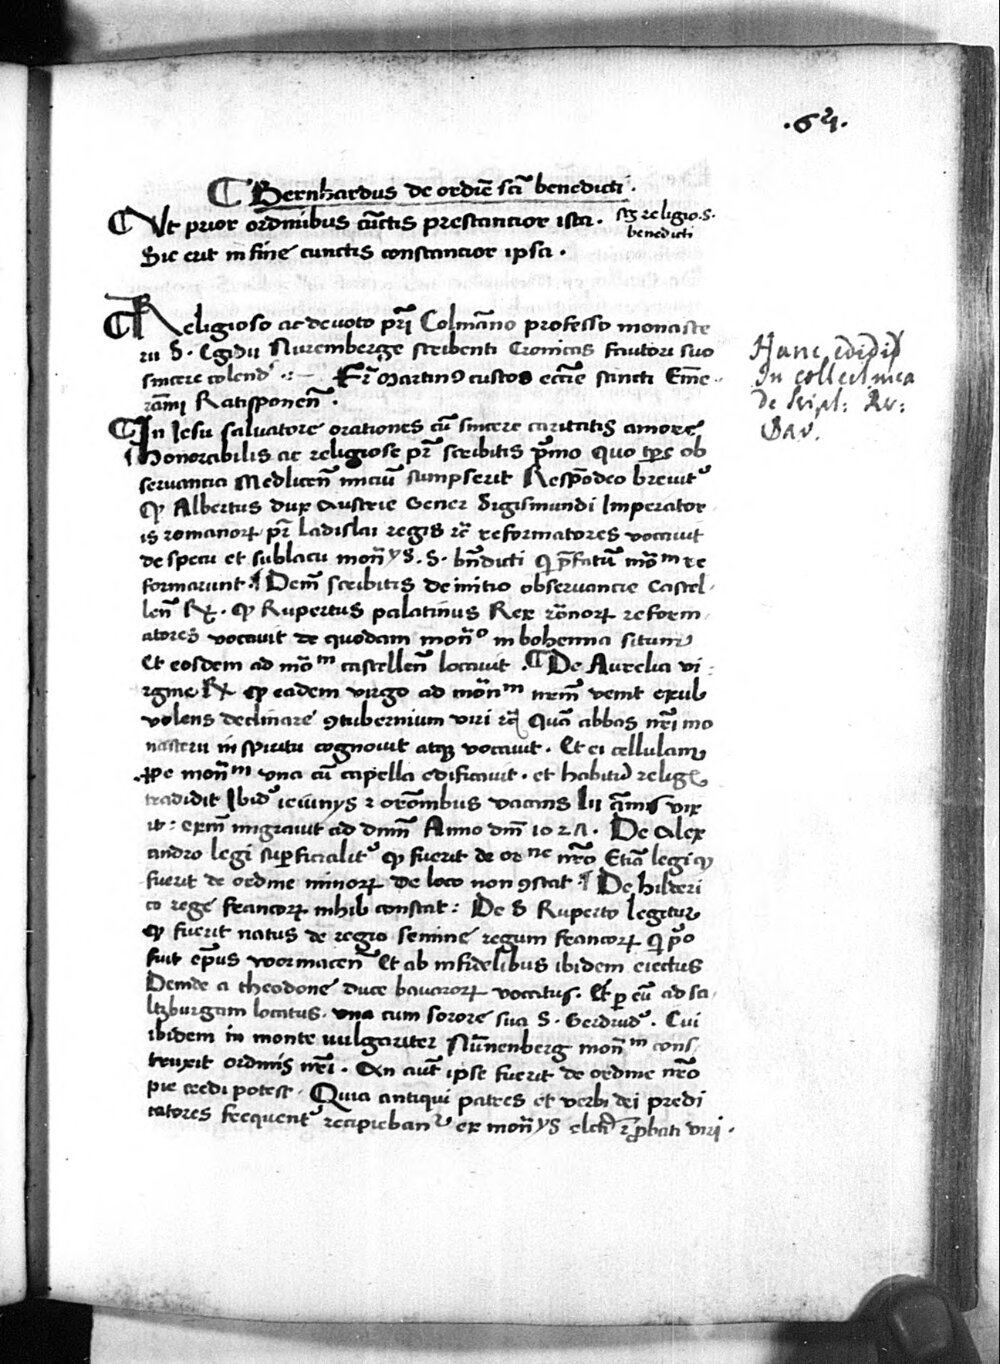 ·64·
Bernhardus de ordīe scī benedicti ·
Ut prior ordinibus cūctis prestancior ista · scz religio · S ·
benedicti
Sic erit in fine cunctis constancior ipsa ·
Religioso ac devoto pr̄i Colmāno professo monaste
rii S · Egidii Nuremberge scribenti Cronicas fautori suo
sincere colend᾽ Fr̄ Martinꝯ custos ecc̄ie sancti Em̄e
rāmi Ratisponen̄ ·
In Jesu salvatore orationes cū sincere caritatis amore
Honorabilis ac religiose pr̄ scribitis pͥmo Quo tp̄re ob
servancia Medlicen̄ iniciū sumpserit Respōdeo brevitᷣ
ꝙ Albertus dux Austrie Gener Sigismundi Imperator
is romanorꝝ pr̄ ladislai regis rc̄ reformatores vocavit
de specu et sublacu mon̄ys · S · bn̄dicti qͥ p̄fatū mō m re
formarunt ¶ Dem̄ scribitis de initio observancie Castel
len̄ · ꝙ Rupertus palatinus Rex rōnorꝝ reform
atores vocavit de quodam mon̄o in bohemia situm
Et eosdem ad mō m castellen̄ locavit · ¶ De Aurelia vi
rgine ꝙ eadem virgo ad mōn m nr̄m venit exul
volens declinare ꝯtubernium viri Quā abbas nr̄i mo
nasterii in spiritu cognovit atqꝫ vocavit · Et ei cellulam
ꝓpe mon̄ m una cū capella edificavit · et habitū relig
tradidit Ibidᷣ ieiunys ⁊ orōnibus vacans lii ān̄is vix
it : ex m̄ migravit ad dn̄m Anno dn̄i 1027 · De Alex
andro legi suꝑficialitᷣ ꝙ fuerit de or ne nr̄o Etiā legi ꝙ
fuerit de ordine minorꝝ De loco non ꝯstat ¶ De hilderi
co rege francorꝝ nihil constat : De S Ruperto legitur
ꝙ fuerit natus de regio semine regum francorꝝ qͥ pͥo
fuit ep̄us wormacen̄ Et ab infidelibus ibidem eiectus
Deinde a theodone duce bavarorꝝ vocatus · Et ꝑ eū ad sa
ltzburgam locatus · una cum sorore sua S · Gerdrud · Cui
ibidem in monte vulgariter Nūnenberg mon̄ m cons
truxit ordinis nr̄i · An aūt ipse fuerit de ordine nr̄o
pie credi potest · Quia antiqui patres et verbi dei predi
catores frequentᷣ recipiebanᷣ ex mon̄ys ꝓbati viri ·
Hanc edidit
In collectinea
de Script: Rer:
Bav.